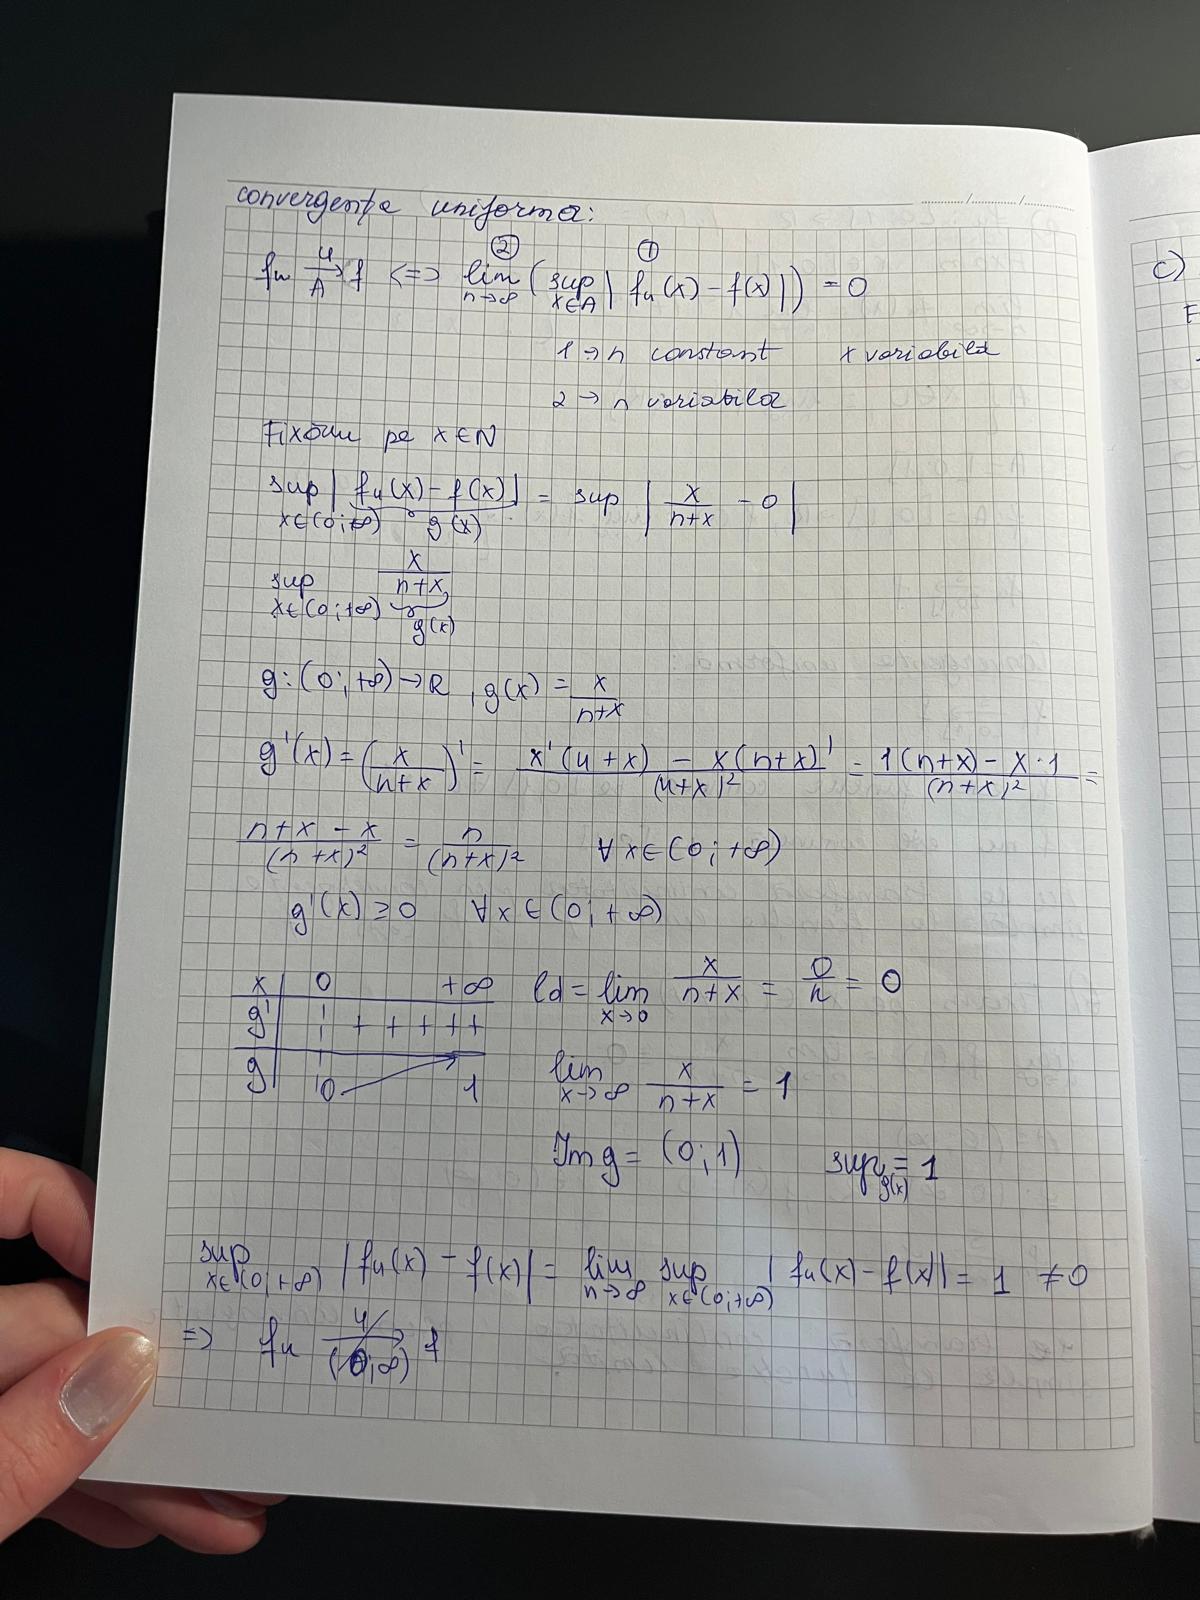 convergența uniformă:
② ①
fn u/A→ f <=> lim n→∞ ( sup x∈A | fn(x) - f(x) | ) = 0
1 → n constant x variabilă
2 → n variabilă
Fixăm pe x∈N
sup x∈(0;+∞) | fn(x) - f(x) | = sup | x/(n+x) - 0 |
g(x)
sup x∈(0;+∞) x/(n+x)
g(x)
g: (0;+∞) → R , g(x) = x/(n+x)
g'(x) = (x/(n+x))' = (x'(n+x) - x(n+x)')/(n+x)² = (1(n+x) - x·1)/(n+x)² =
(n+x-x)/(n+x)² = n/(n+x)² ∀x∈(0;+∞)
g'(x) ≥ 0 ∀x∈(0;+∞)
x | 0 +∞ ld = lim x→0 x/(n+x) = 0/n = 0
g' | + + + + +
g | 0 → 1 lim x→∞ x/(n+x) = 1
Im g = (0;1) sup g(x) = 1
sup x∈(0;+∞) | fn(x) - f(x) | = lim n→∞ sup x∈(0;+∞) | fn(x) - f(x) | = 1 ≠ 0
=> fn u̸/(0;∞)→ f
c)